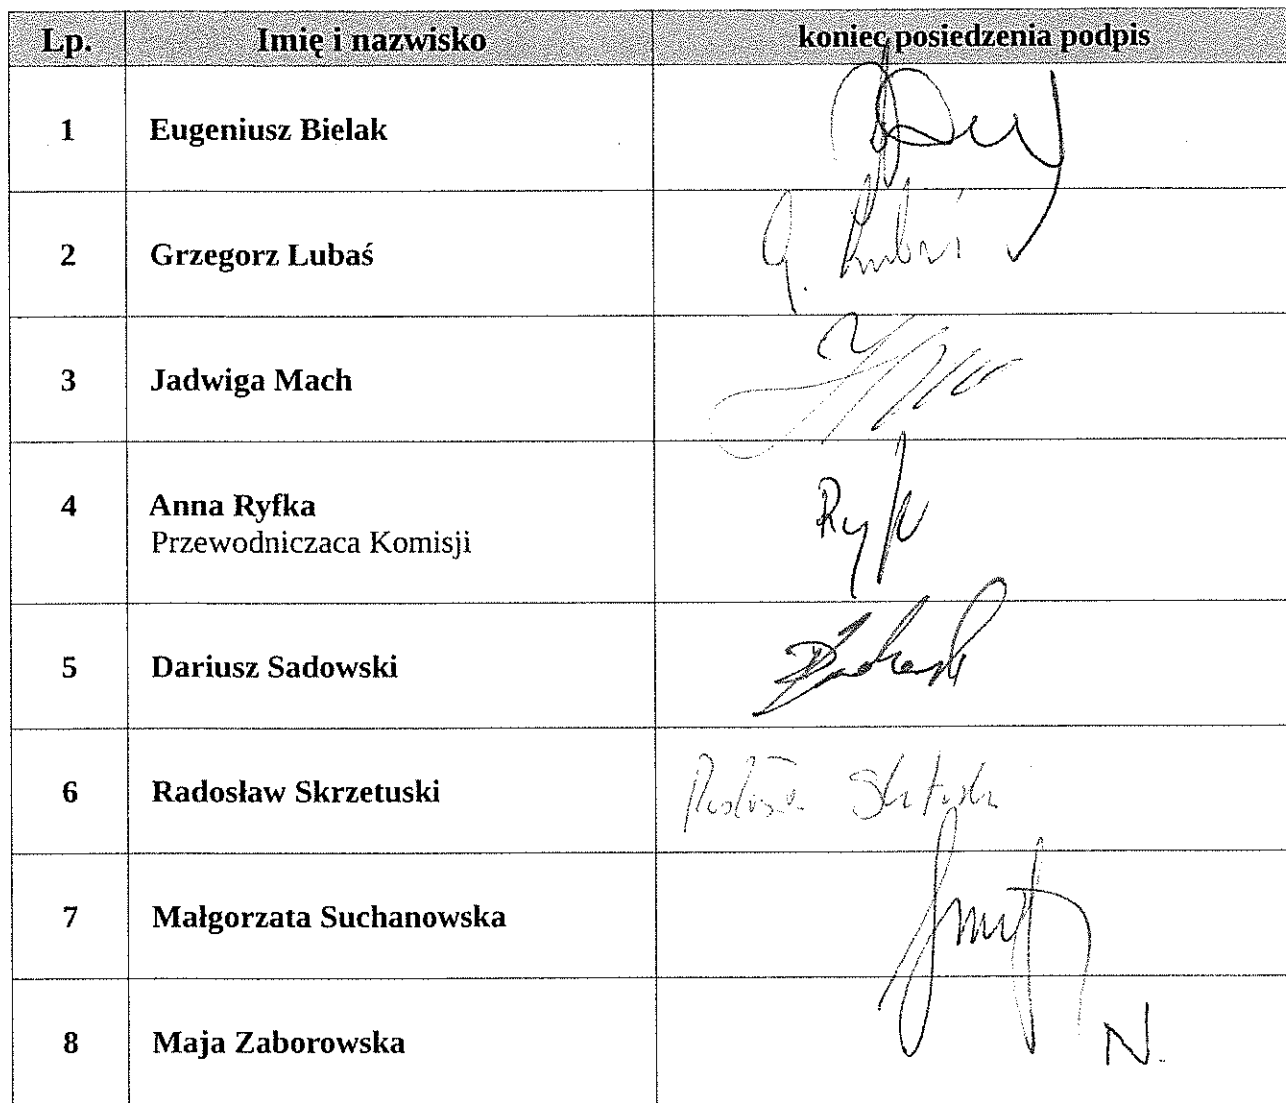 Lp. Imię i nazwisko koniec posiedzenia podpis
1 Eugeniusz Bielak
2 Grzegorz Lubaś G. Lubaś
3 Jadwiga Mach
4 Anna Ryfka
Przewodniczaca Komisji
5 Dariusz Sadowski
6 Radosław Skrzetuski
7 Małgorzata Suchanowska
8 Maja Zaborowska N.